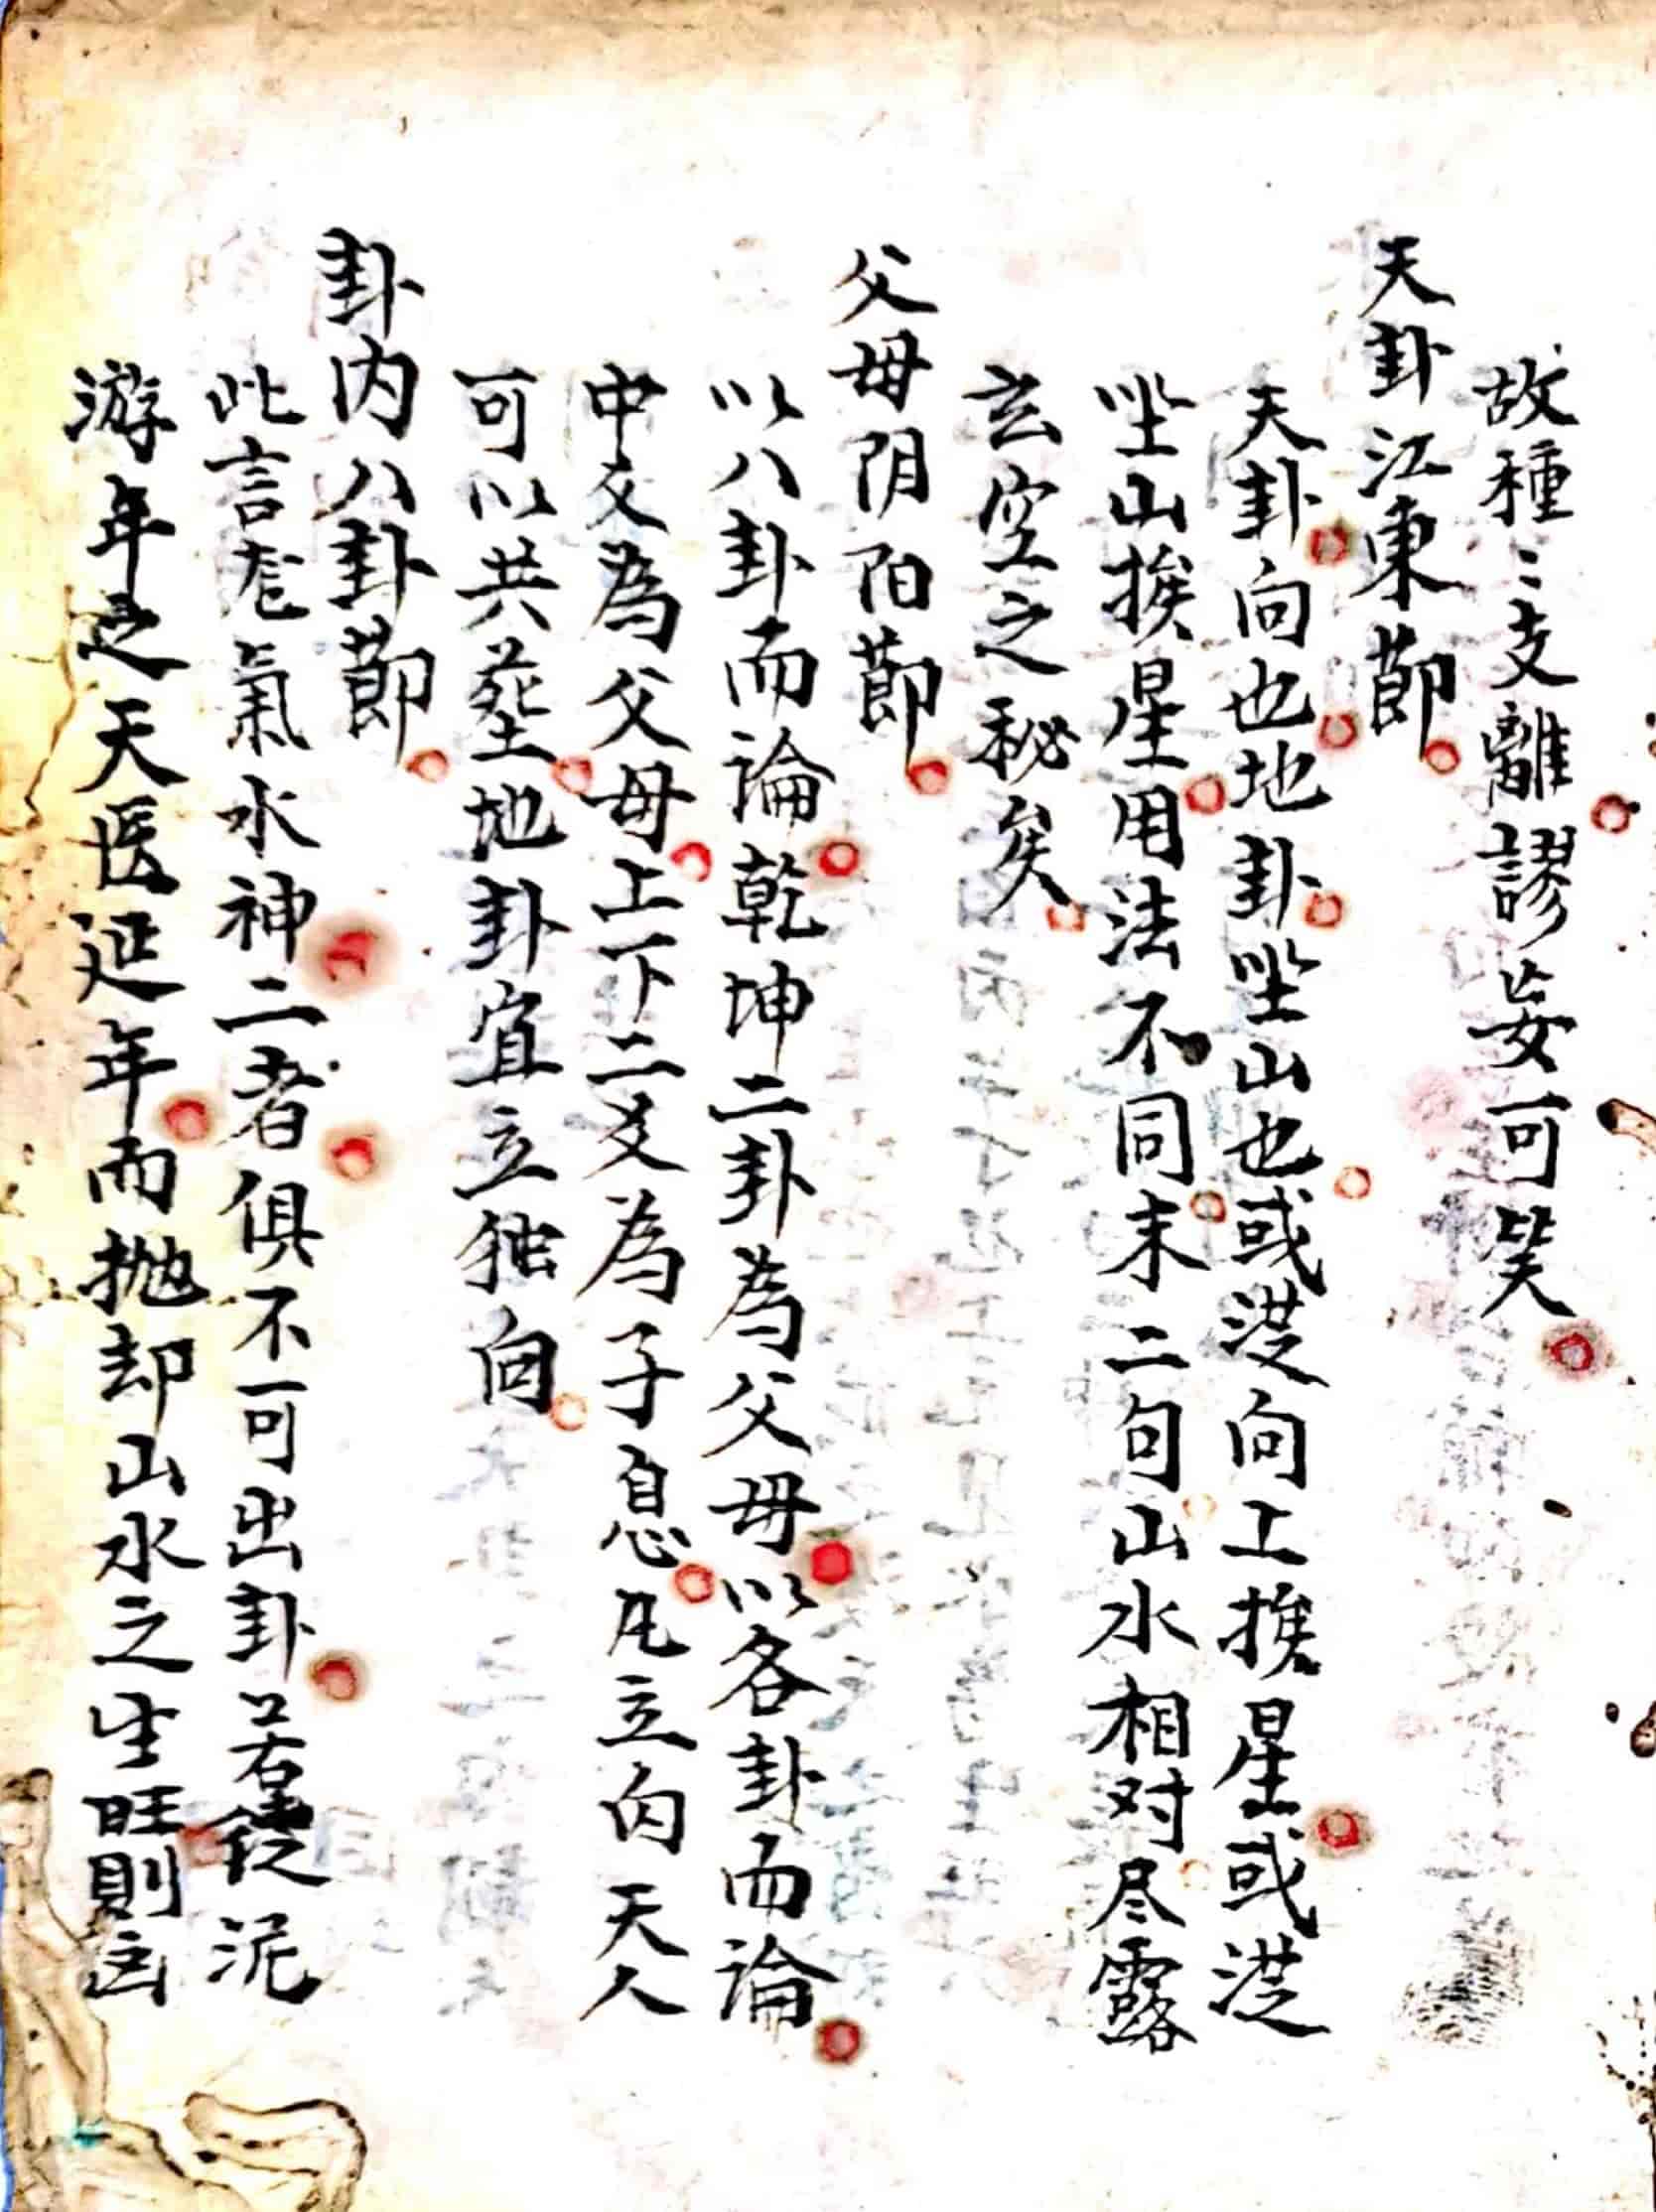 故種〻支離謬妄可笑
天卦江東節
天卦向也地卦坐山也或從向上挨星或從
坐山挨星用法不同末二句山水相对尽露
玄空之秘矣
父母阴阳節
以八卦而論乾坤二卦為父母以各卦而論
中爻為父母上下二爻為子息凡立向天人
可以共塋地卦宜立独向
卦内八卦節
此言龙氣水神二者俱不可出卦若僅泥
游年之天医延年而抛却山水之生旺則